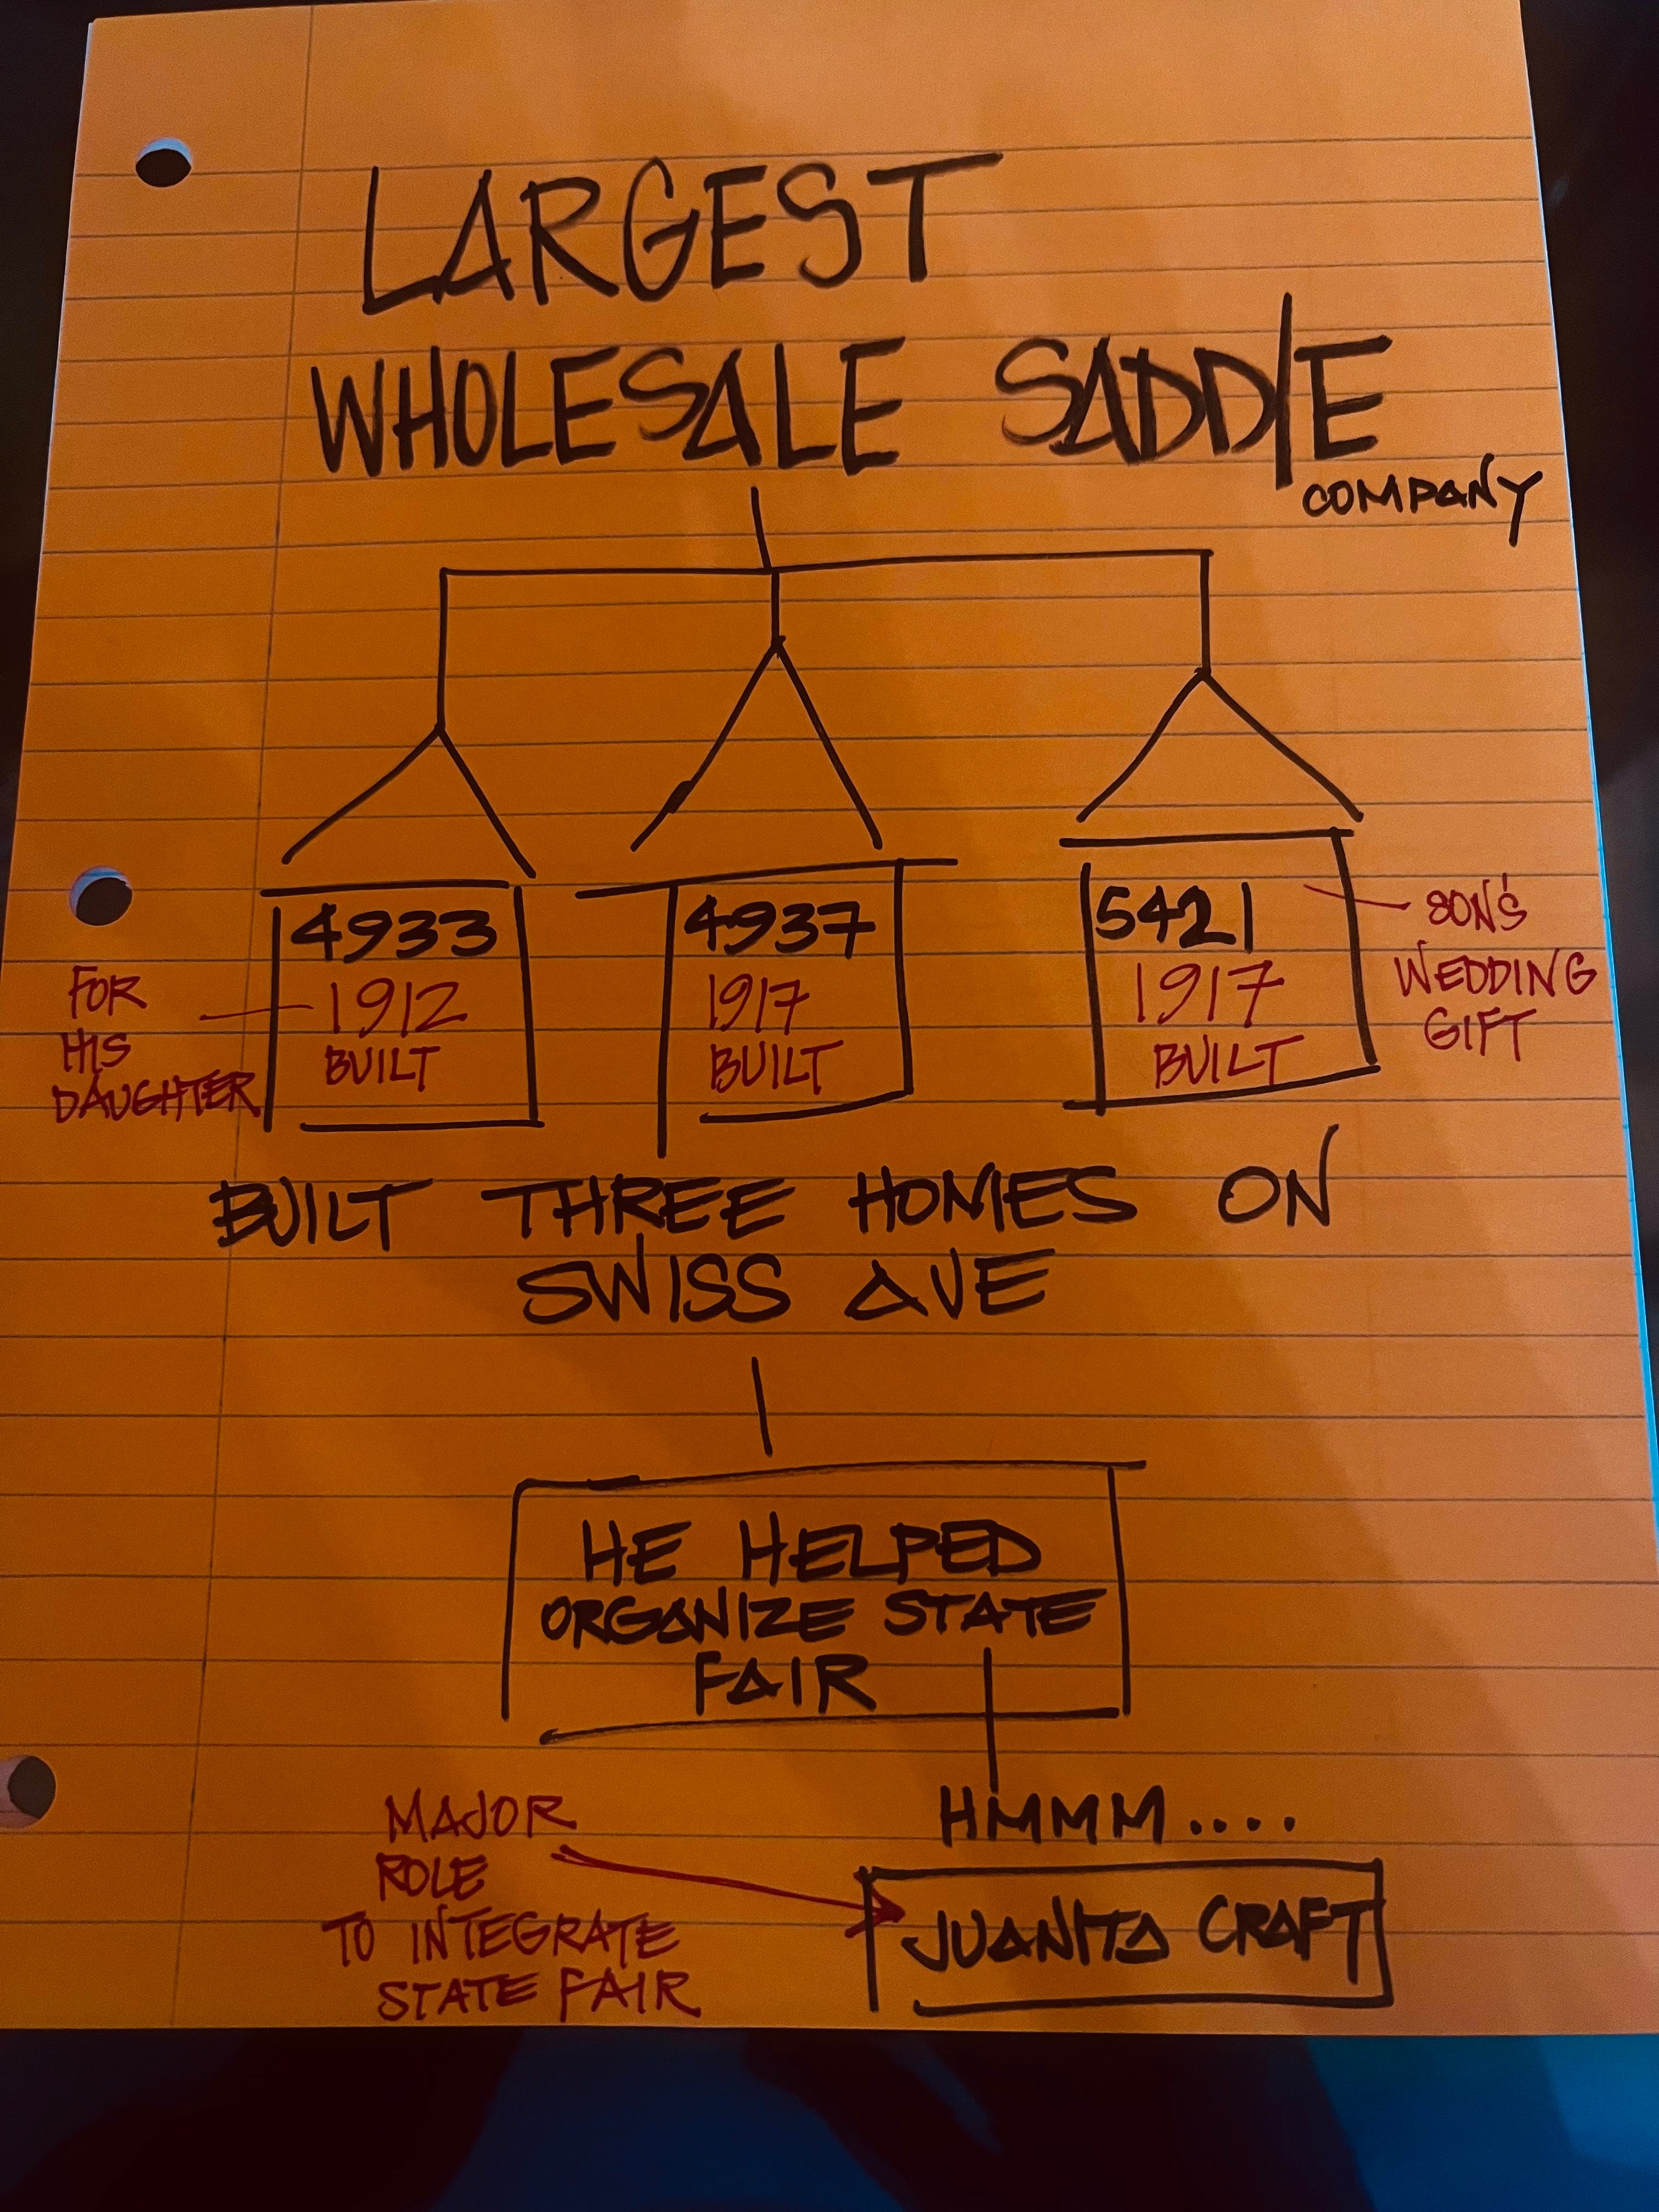 LARGEST
WHOLESALE SADDlE
COMPANY
4933
1912
BUILT
FOR
HIS
DAUGHTER
4937
1917
BUILT
5421
1917
BUILT
SON'S
WEDDING
GIFT
BUILT THREE HOMES ON
SWISS AVE
HE HELPED
ORGANIZE STATE
FAIR
HMMM....
MAJOR
ROLE
TO INTEGRATE
STATE FAIR
JUANITA CRAFT